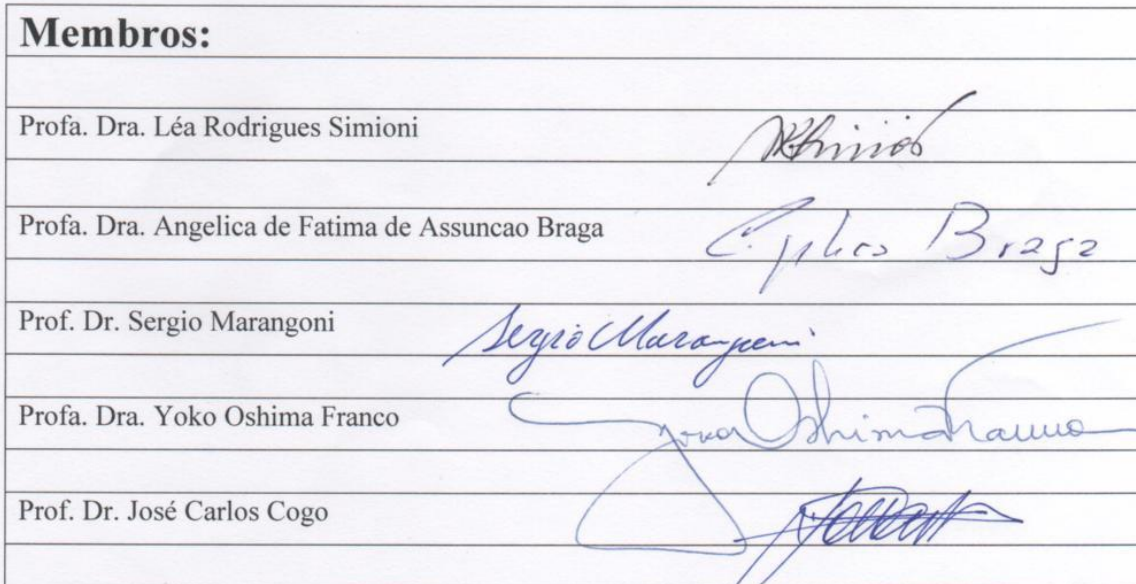 Membros:
Profa. Dra. Léa Rodrigues Simioni
Profa. Dra. Angelica de Fatima de Assuncao Braga
Braga
Prof. Dr. Sergio Marangoni
Sergio Marangoni
Profa. Dra. Yoko Oshima Franco
Yoko Oshima Franco
Prof. Dr. José Carlos Cogo